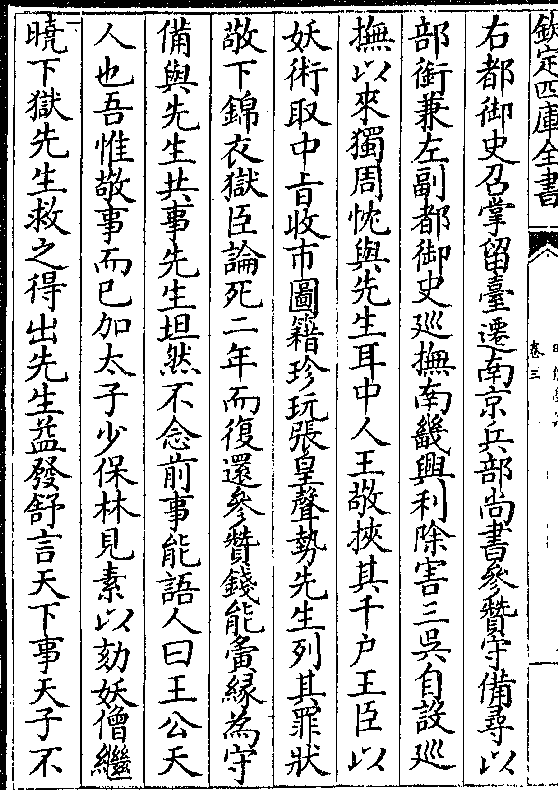 欽定四庫全書
卷三
右都御史召掌留臺遷南京兵部尚書參贊守備尋以
部銜兼左副都御史廵撫南畿興利除害三吳自設廵
撫以來獨周忱與先生耳中人王敬挾其千户王臣以
妖術取中㫖收市圖籍珍玩張皇聲勢先生列其罪狀
敬下錦衣獄臣論死二年而復還參贊錢能夤緣為守
備與先生共事先生坦然不念前事能語人曰王公天
人也吾惟敬事而已加太子少保林見素以劾妖僧繼
曉下獄先生救之得出先生益發舒言天下事天子不